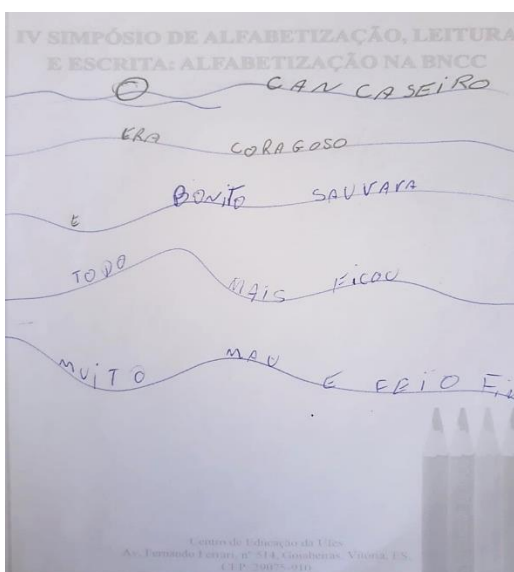 IV SIMPÓSIO DE ALFABETIZAÇÃO, LEITURA
E ESCRITA: ALFABETIZAÇÃO NA BNCC
O CAN CASEIRO
ERA CORAGOSO
E BONITO SAUVAVA
TODO MAIS FICOU
MUITO MAU E FEIO
Centro de Educação da Ufes
Av. Fernando Ferrari, nº 514, Goiabeiras, Vitória, ES
CEP: 29075-910